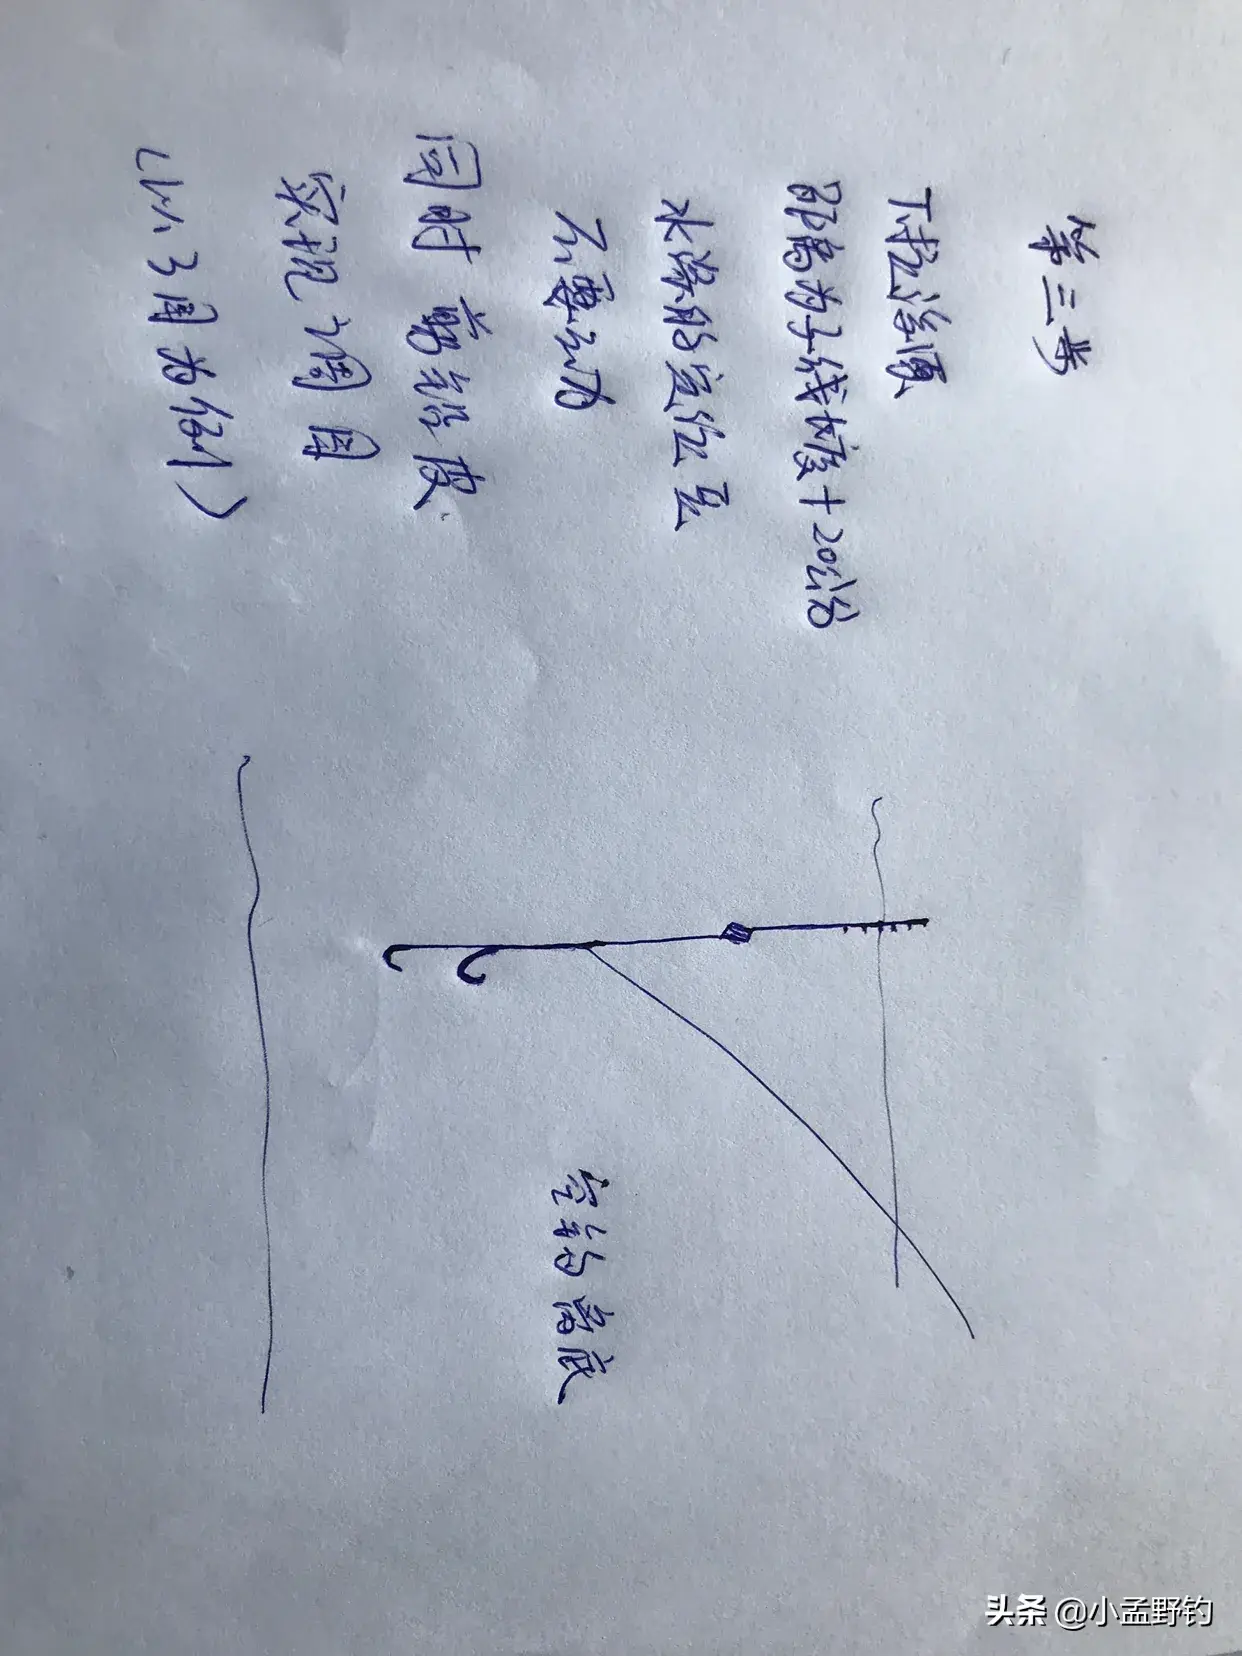 第三步
下拉浮漂
距离为子线长度+20公分
水漂的定位豆
不要动
同时剪铅皮
实现调目
(以3目为例)
空钩离底
头条 @小孟野钓